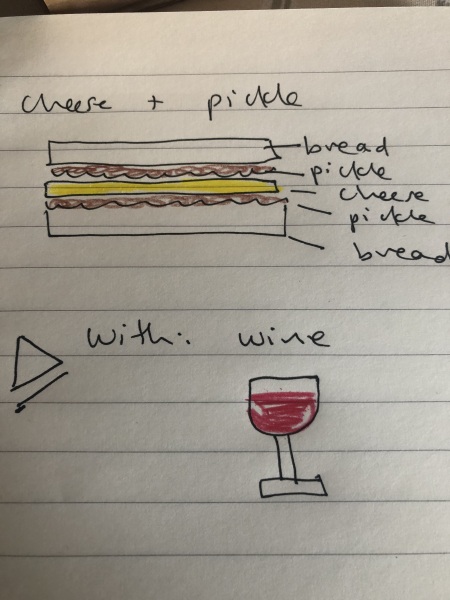 cheese + pickle
bread
pickle
cheese
pickle
bread
with: wine